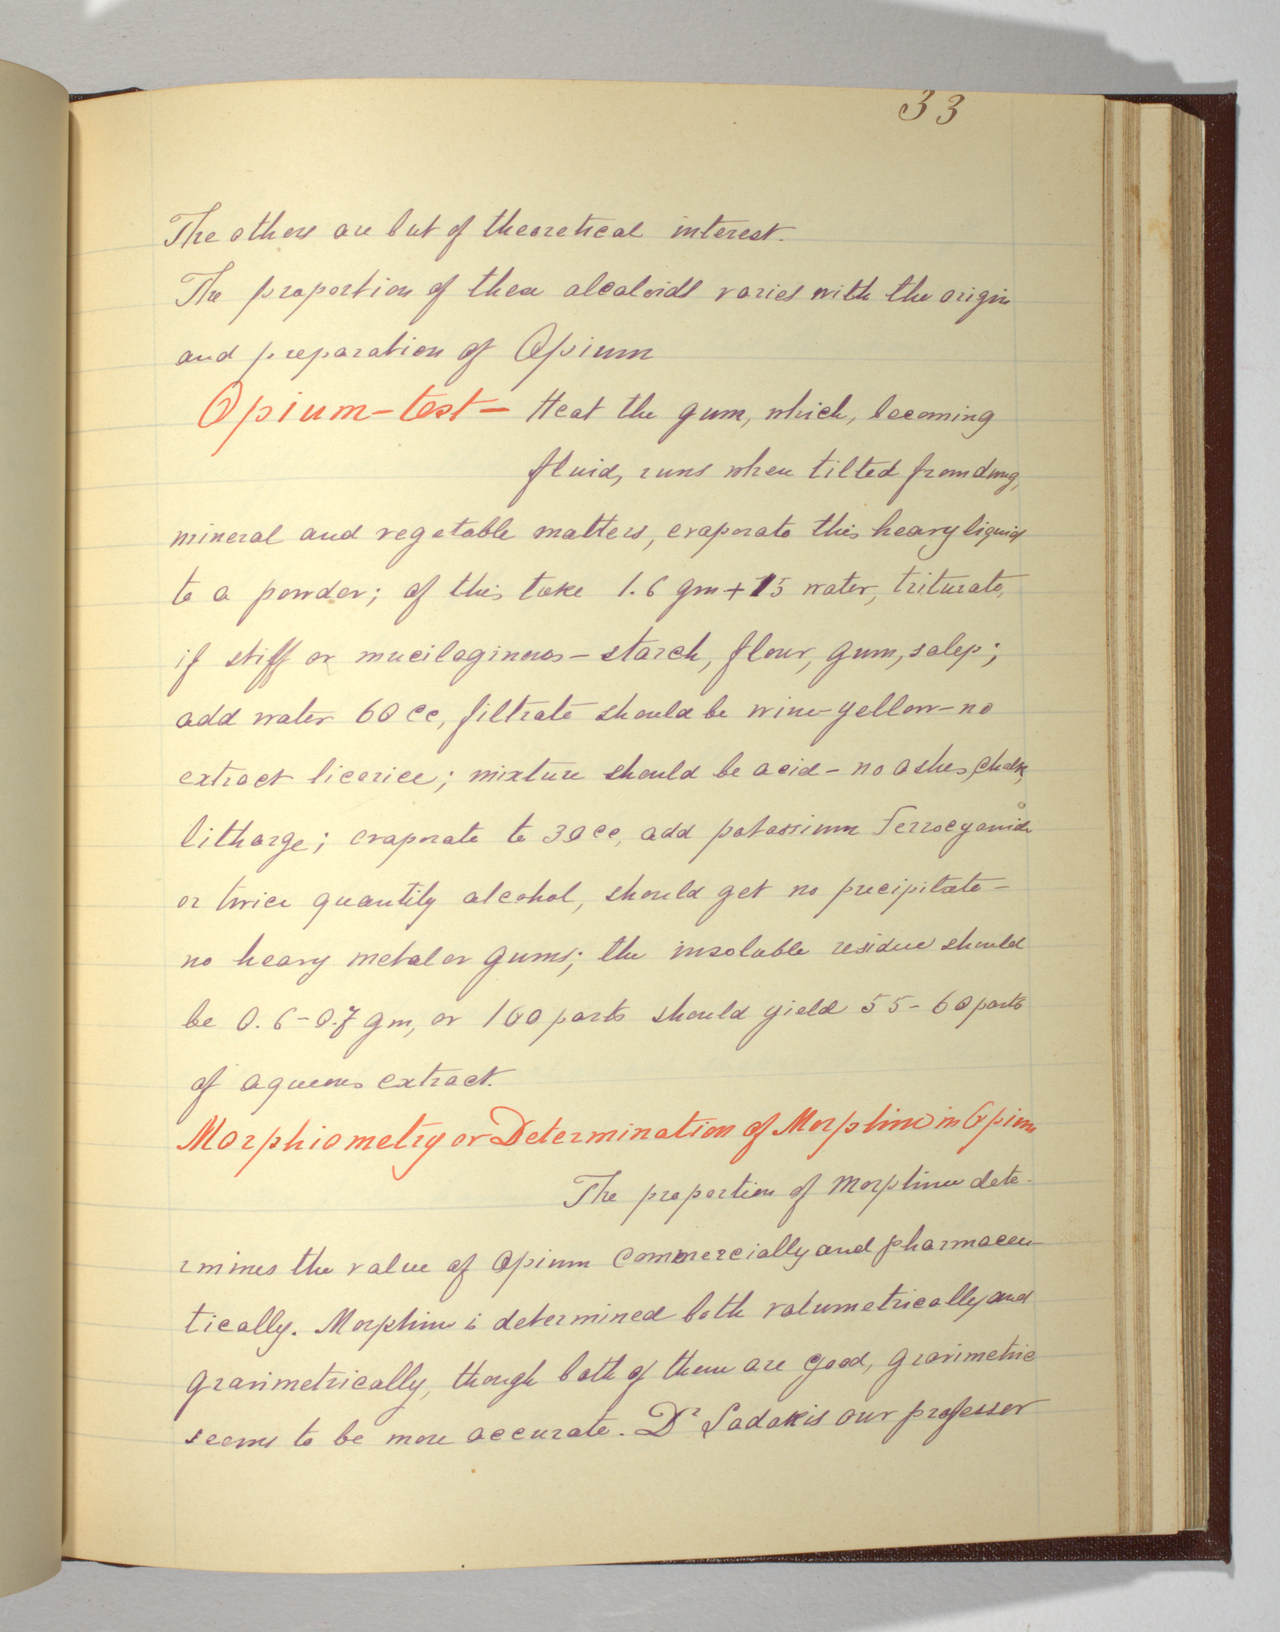 33
The others are but of theoretical interest.
The proportion of these alcaloids varies with the origin
and preparation of Opium
Opium-test- Heat the gum, which, becoming
fluid, runs when tilted from dung,
mineral and vegetable matters, evaporate this heavy liquid
to a powder; of this take 1.6 gm + 15 water, triturate,
if stiff or mucilaginous - starch, flour, gum, salep;
add water 60 cc, filtrate should be wine-yellow - no
extract licorice; mixture should be acid - no ashes, chalk,
litharge; evaporate to 30 cc, add potassium Ferrocyanide
or twice quantity alcohol, should get no precipitate -
no heavy metal or gums; the insoluble residue should
be 0.6-0.7 gm, or 100 parts should yield 55-60 parts
of aqueous extract.
Morphiometry or Determination of Morphine in Opium
The proportion of Morphine dete-
rmines the value of Opium Commercially and pharmaceu-
tically. Morphine is determined both volumetrically and
gravimetrically, though both of them are good, gravimetric
seems to be more accurate. Dr Sadakis our professor